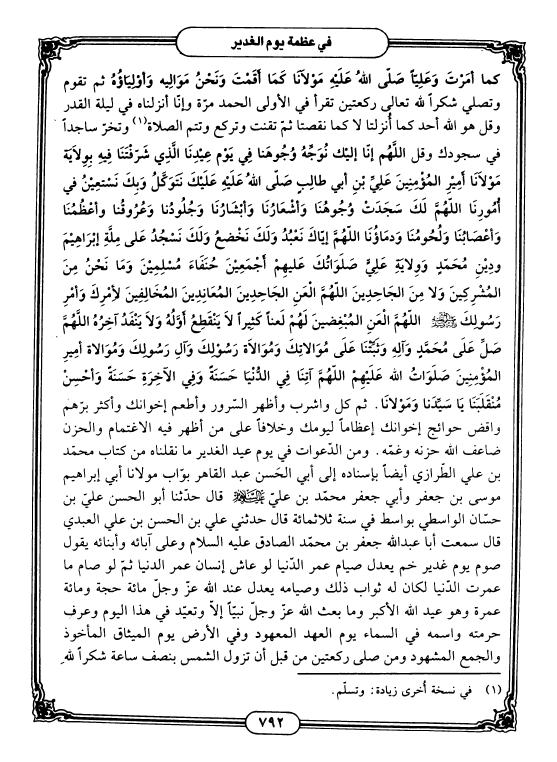 في عظمة يوم الغدير
كما أمَرْتَ وَعَلِيّاً صَلَّى اللهُ عَلَيْهِ مَوْلَانَا كَمَا أَقَمْتَ وَنَحْنُ مَوَالِيه وَأَوْلِيَاؤُهُ ثم تقوم
وتصلي شكراً لله تعالى ركعتين تقرأ في الأولى الحمد مرّة وإنّا أنزلناه في ليلة القدر
وقل هو الله أحد كما أُنزلتا لا كما نقصتا ثمّ تقنت وتركع وتتم الصلاة(١) وتخرّ ساجداً
في سجودك وقل اللَّهُمَّ إنّا إليْك نُوَجِّهُ وُجُوهَنا فِي يَوْمِ عِيْدِنَا الَّذِي شَرَّفْتَنَا فِيهِ بِوِلَايَةِ
مَوْلَانَا أَمِيْرِ المُؤْمِنِينَ عَلِيِّ بْنِ أبي طالِبٍ صَلَّى اللهُ عَلَيْهِ عَلَيْكَ نَتَوَكَّلُ وَبِكَ نَسْتَعِيْنُ في
أُمُورِنَا اللَّهُمَّ لَكَ سَجَدَتْ وُجُوهُنَا وَأَشْعَارُنَا وَأَبْشَارُنَا وَجُلُودُنا وَعُرُوقُنا وأعْظُمُنَا
وَأَعْصَابُنَا وَلُحُومُنَا وَدِمَاؤُنَا اللَّهُمَّ إيّاكَ نَعْبُدُ وَلَكَ نَخْضَعُ وَلَكَ نَسْجُدُ عَلى مِلَّةِ إبْرَاهِيْمَ
ودِيْنِ مُحَمَّدٍ وَوِلايَةِ عَلِيٍّ صَلَوَاتُكَ عَلَيهِمْ أَجْمَعِيْنَ حُنَفَاءَ مُسْلِمِيْنَ وَمَا نَحْنُ مِنَ
المُشْرِكِينَ وَلَا مِنَ الجَاحِدِينَ اللَّهُمَّ الْعَنِ الجَاحِدِينَ المُعَانِدِينَ المُخَالِفِينَ لأَمْرِكَ وَأَمْرِ
رَسُولِكَ ﷺ اللَّهُمَّ الْعَنِ المُبْغِضِينَ لَهُمْ لَعناً كَثِيراً لَا يَنْقَطِعُ أَوَّلُهُ وَلَا يَنْفَدُ آخِرُهُ اللَّهُمَّ
صَلِّ عَلَى مُحَمَّدٍ وَآلِهِ وَثَبِّتْنَا عَلَى مُوَالاتِكَ وَمُوَالَاةِ رَسُوْلِكَ وَآلِ رَسُولِكَ وَمُوَالاة أمِيرِ
المُؤْمِنِينَ صَلَوَاتُ الله عَلَيْهِمْ اللَّهُمَّ آتِنَا فِي الدُّنْيَا حَسَنَةً وَفِي الآخِرَةِ حَسَنَةً وَأَحْسِنْ
مُنْقَلَبَنَا يَا سَيِّدَنا وَمَوْلَانَا. ثم كل واشرب وأظهر السّرور وأطعم إخوانك وأكثر برّهم
واقض حوائج إخوانك إعظاماً ليومك وخلافاً على من أظهر فيه الاغتمام والحزن
ضاعف الله حزنه وغمّه. ومن الدّعوات في يوم عيد الغدير ما نقلناه من كتاب محمّد
بن علي الطّرازي أيضاً بإسناده إلى أبي الحَسن عبد القاهر بوّاب مولانا أبي إبراهيم
موسى بن جعفر وأبي جعفر محمّد بن عليّ ﷺ قال حدثنا أبو الحسن عليّ بن
حسّان الواسطي بواسط في سنة ثلاثمائة قال حدثني علي بن الحسن بن علي العبدي
قال سمعت أبا عبدالله جعفر بن محمّد الصادق عليه السلام وعلى آبائه وأبنائه يقول
صوم يوم غدير خم يعدل صيام عمر الدّنيا لو عاش إنسان عمر الدنيا ثمّ لو صام ما
عمرت الدّنيا لكان له ثواب ذلك وصيامه يعدل عند الله عزّ وجلّ مائة حجة ومائة
عمرة وهو عيد الله الأكبر وما بعث الله عزّ وجلّ نبيّاً إلّا وتعيّد في هذا اليوم وعرف
حرمته واسمه في السماء يوم العهد المعهود وفي الأرض يوم الميثاق المأخوذ
والجمع المشهود ومن صلى ركعتين من قبل أن تزول الشمس بنصف ساعة شكراً لله
(١) في نسخة أُخرى زيادة: وتسلّم.
٧٩٢